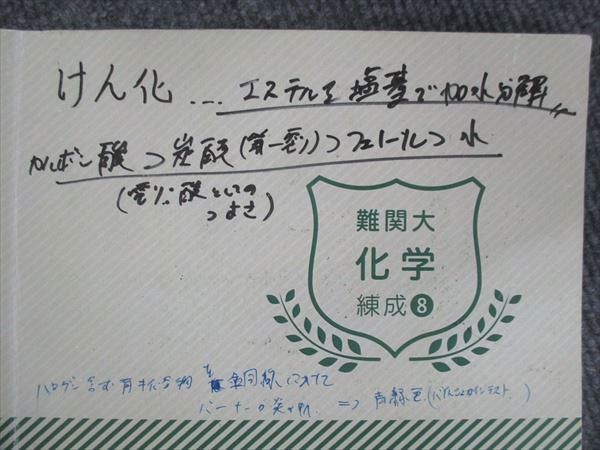 けん化… エステルを塩基で加水分解
カルボン酸 > 炭酸(第一電離) > フェノール > 水
(酸としての
つよさ)
難関大
化学
練成8
ハロゲン含む有機化合物を
バーナーの炎 ⇒ 青緑色(バイルシュタインテスト)